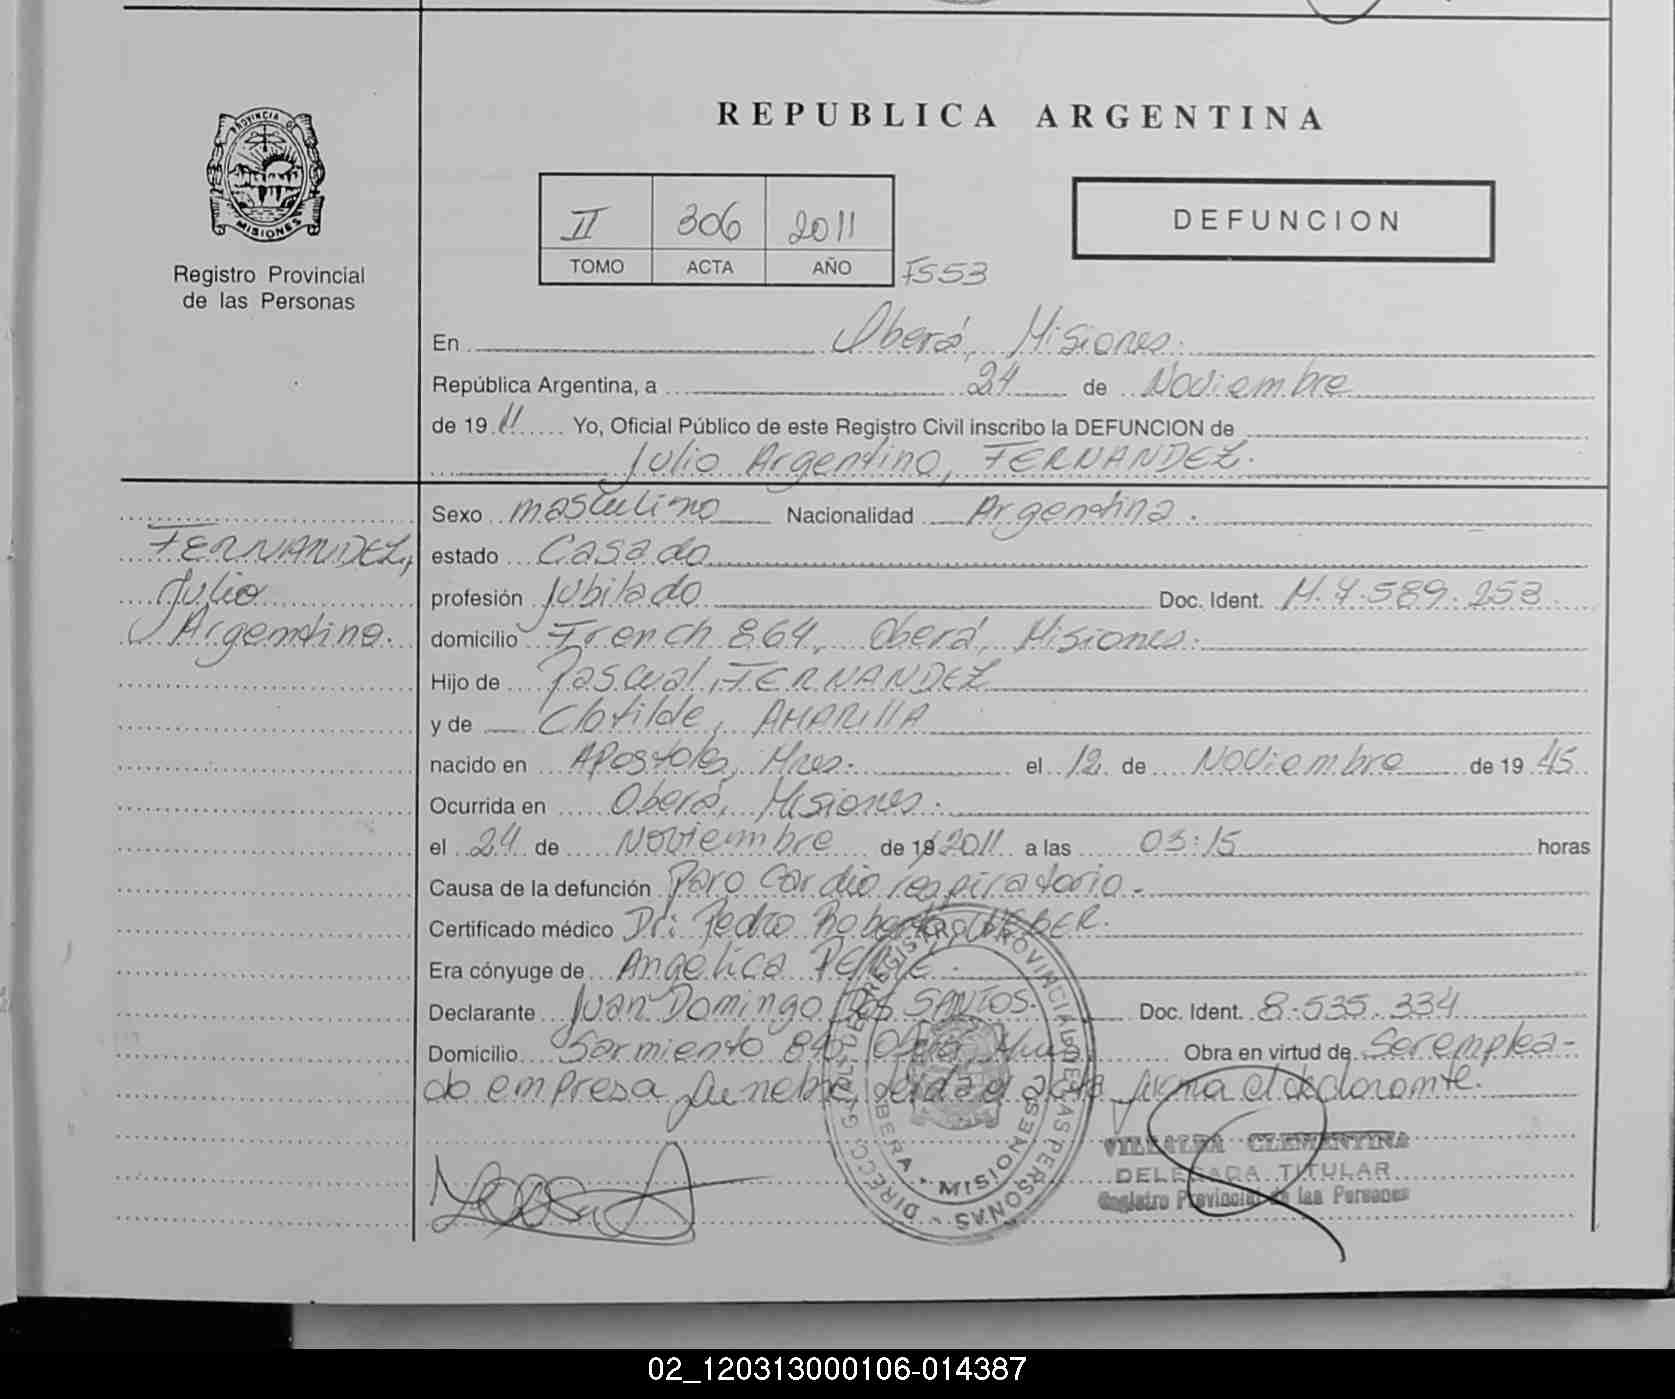 PROVINCIA DE
MISIONES
Registro Provincial
de las Personas
REPUBLICA ARGENTINA
II 306 2011
TOMO ACTA AÑO
FS53
DEFUNCION
En Oberá, Misiones.
República Argentina, a 24 de Noviembre
de 19 11 Yo, Oficial Público de este Registro Civil inscribo la DEFUNCION de
Julio Argentino, FERNANDEZ.
FERNANDEZ,
Julio
Argentino.
Sexo masculino Nacionalidad Argentina.
estado Casado
profesión Jubilado Doc. Ident. M.7.589.253
domicilio French 864, Oberá, Misiones.
Hijo de Pascual, FERNANDEZ
y de Clotilde, AMARILLA
nacido en Apostoles, Mnes. el 12 de Noviembre de 19 45
Ocurrida en Oberá, Misiones.
el 24 de Noviembre de 19 2011 a las 03:15 horas
Causa de la defunción Paro Cardio respiratorio.
Certificado médico Dr: Pedro Roberto, WEBER.
Era cónyuge de Angélica
Declarante Juan Domingo Dos SANTOS. Doc. Ident. 8.535.334
Domicilio Sarmiento Oberá Obra en virtud de Ser emplea-
do empresa funebre, leida el acta firma el declarante.
DIRECC. GRAL. DE REGISTRO PROVINCIAL DE LAS PERSONAS
OBERA - MISIONES
VILLALBA CLEMENTINA
DELEGADA TITULAR
Registro Provincial de las Personas
02_120313000106-014387